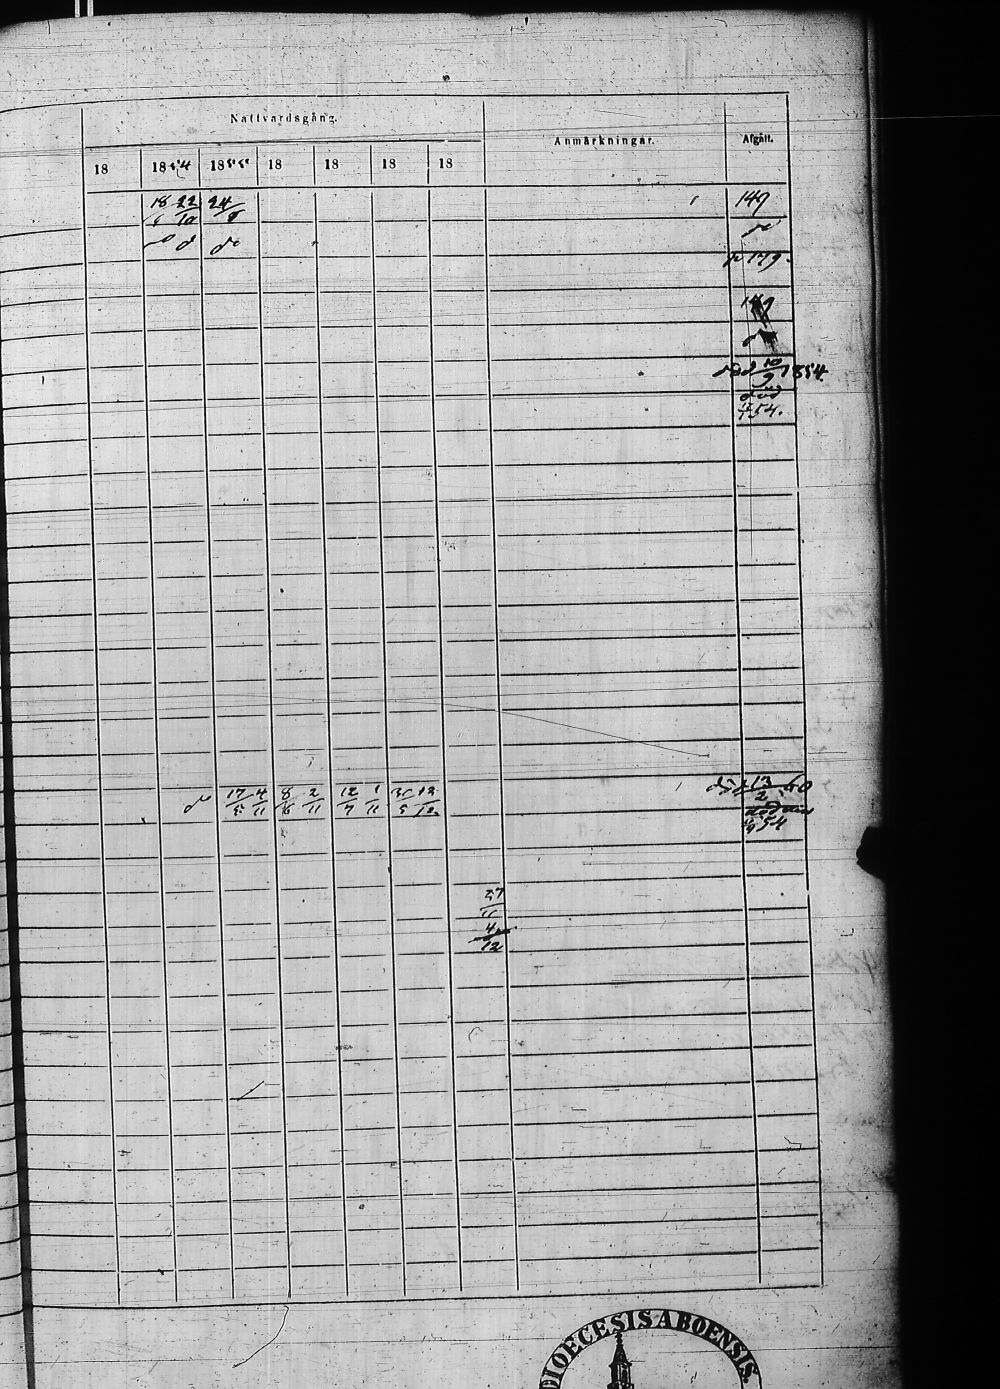 Nattvardsgång. Anmärkningar. Afgått.
18 1854 1855 18 18 18 18
18 22 24 149
6 10 8
do d do do
p 179.
död 10/9 1854.
död
54.
do 17/5 4/11 8/6 2/11 12/7 1/11 12/12 död 13/2 60
54
27
11
4
12
DIOECESIS ABOENSIS.